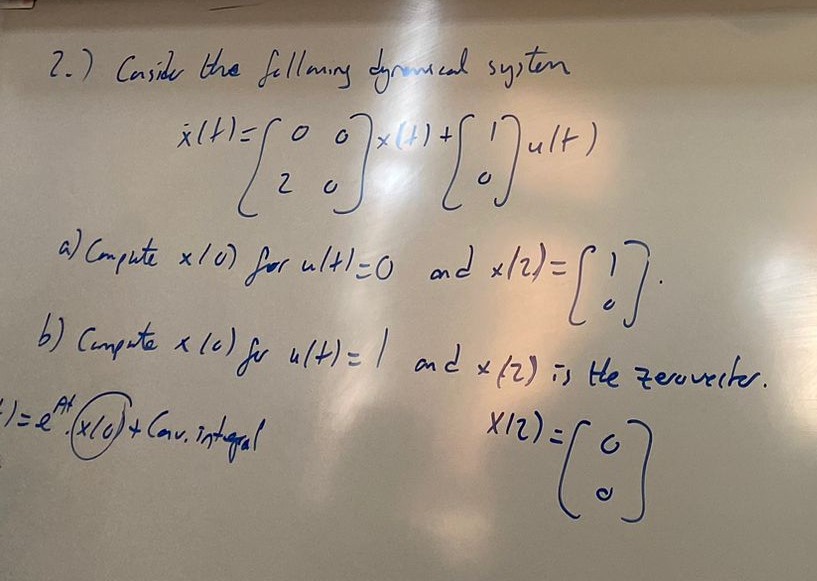 2.) Consider the following dynamical system
ẋ(t)=[0 0; 2 0]x(t)+[1; 0]u(t)
a) Compute x(0) for u(t)=0 and x(2)=[1; 0].
b) Compute x(0) for u(t)=1 and x(2) is the zerovector.
)=e^At.x(0)+Conv. integral
x(2)=[0; 0]